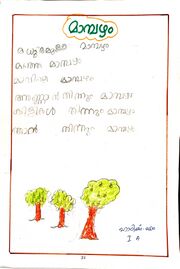 മാമ്പഴം
മധുരമുള്ള മാമ്പഴം
മഞ്ഞ മാമ്പഴം
മാവിലെ മാമ്പഴം
അണ്ണാൻ തിന്നും മാമ്പഴം
കിളികൾ തിന്നും മാമ്പഴം
ഞാൻ തിന്നും മാമ്പഴം
I A